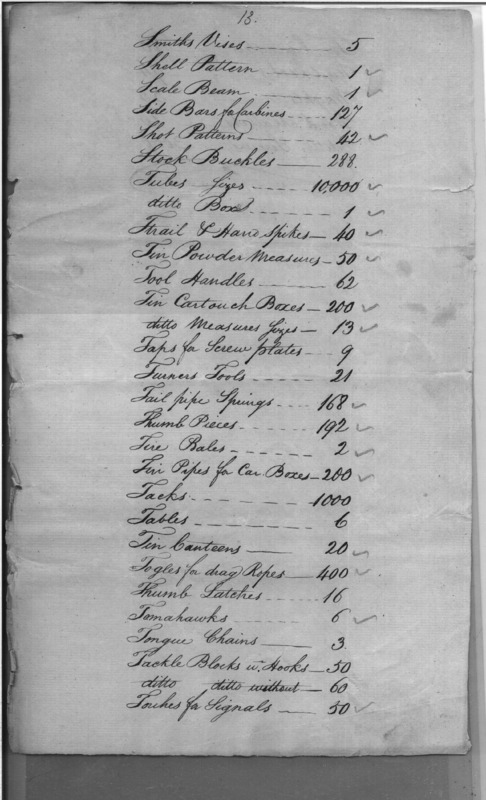 13.
Smiths Vises 5
Shell Pattern 1
Scale Beam 1
Side Bars for Carbines 127
Shot Patterns 42
Stock Buckles 288.
Tubes sizes 10,000
ditto Box 1
Trail & Hand Spikes 40
Tin Powder Measures 50
Tool Handles 62
Tin Cartouch Boxes 200
ditto Measures sizes 13
Taps for Screw plates 9
Turners Tools 21
Tail pipe Springs 168
Thumb Pieces 192
Tire Bales 2
Tin Pipes for Car Boxes 200
Tacks 1000
Tables 6
Tin Canteens 20
Togles for drag Ropes 400
Thumb Latches 16
Tomahawks 6
Tongue Chains 3
Tackle Blocks w. Hooks 50
ditto ditto without 60
Touches for Signals 50